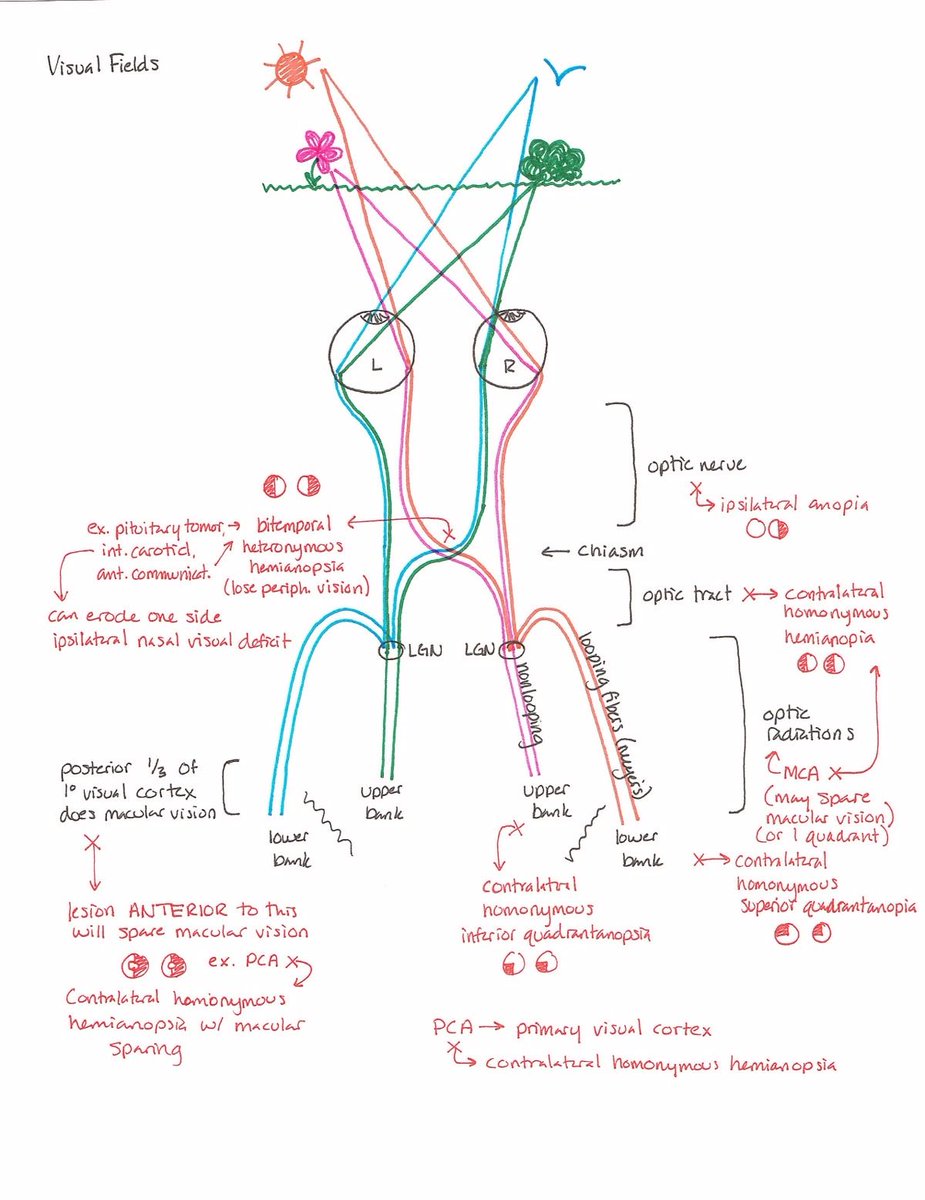 Visual Fields
L
R
optic nerve
ipsilateral anopia
ex. pituitary tumor,
int. carotid,
ant. communicat.
bitemporal
heteronymous
hemianopsia
(lose periph. vision)
chiasm
can erode one side
ipsilateral nasal visual deficit
optic tract
contralateral
homonymous
hemianopia
LGN
LGN
nonlooping
looping fibers (meyers)
optic
radiations
MCA
(may spare
macular vision)
(or 1 quadrant)
posterior 1/3 of
1° visual cortex
does macular vision
lower
bank
upper
bank
upper
bank
lower
bank
contralateral
homonymous
superior quadrantanopia
contralateral
homonymous
inferior quadrantanopsia
lesion ANTERIOR to this
will spare macular vision
ex. PCA
Contralateral homonymous
hemianopsia w/ macular
sparing
PCA → primary visual cortex
contralateral homonymous hemianopsia